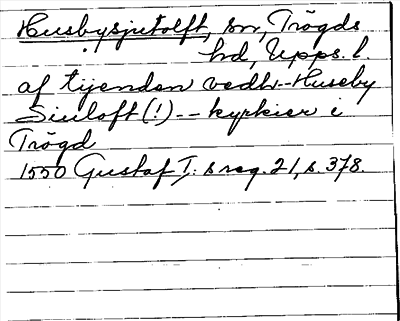 Husbysjutolft, sn, Trögds
hd, Upps. l.
af tijenden vedh -- Huseby
Siuloft (!) -- kyrkier i
Trögd
1550 Gustaf I: s reg. 21, s. 378.